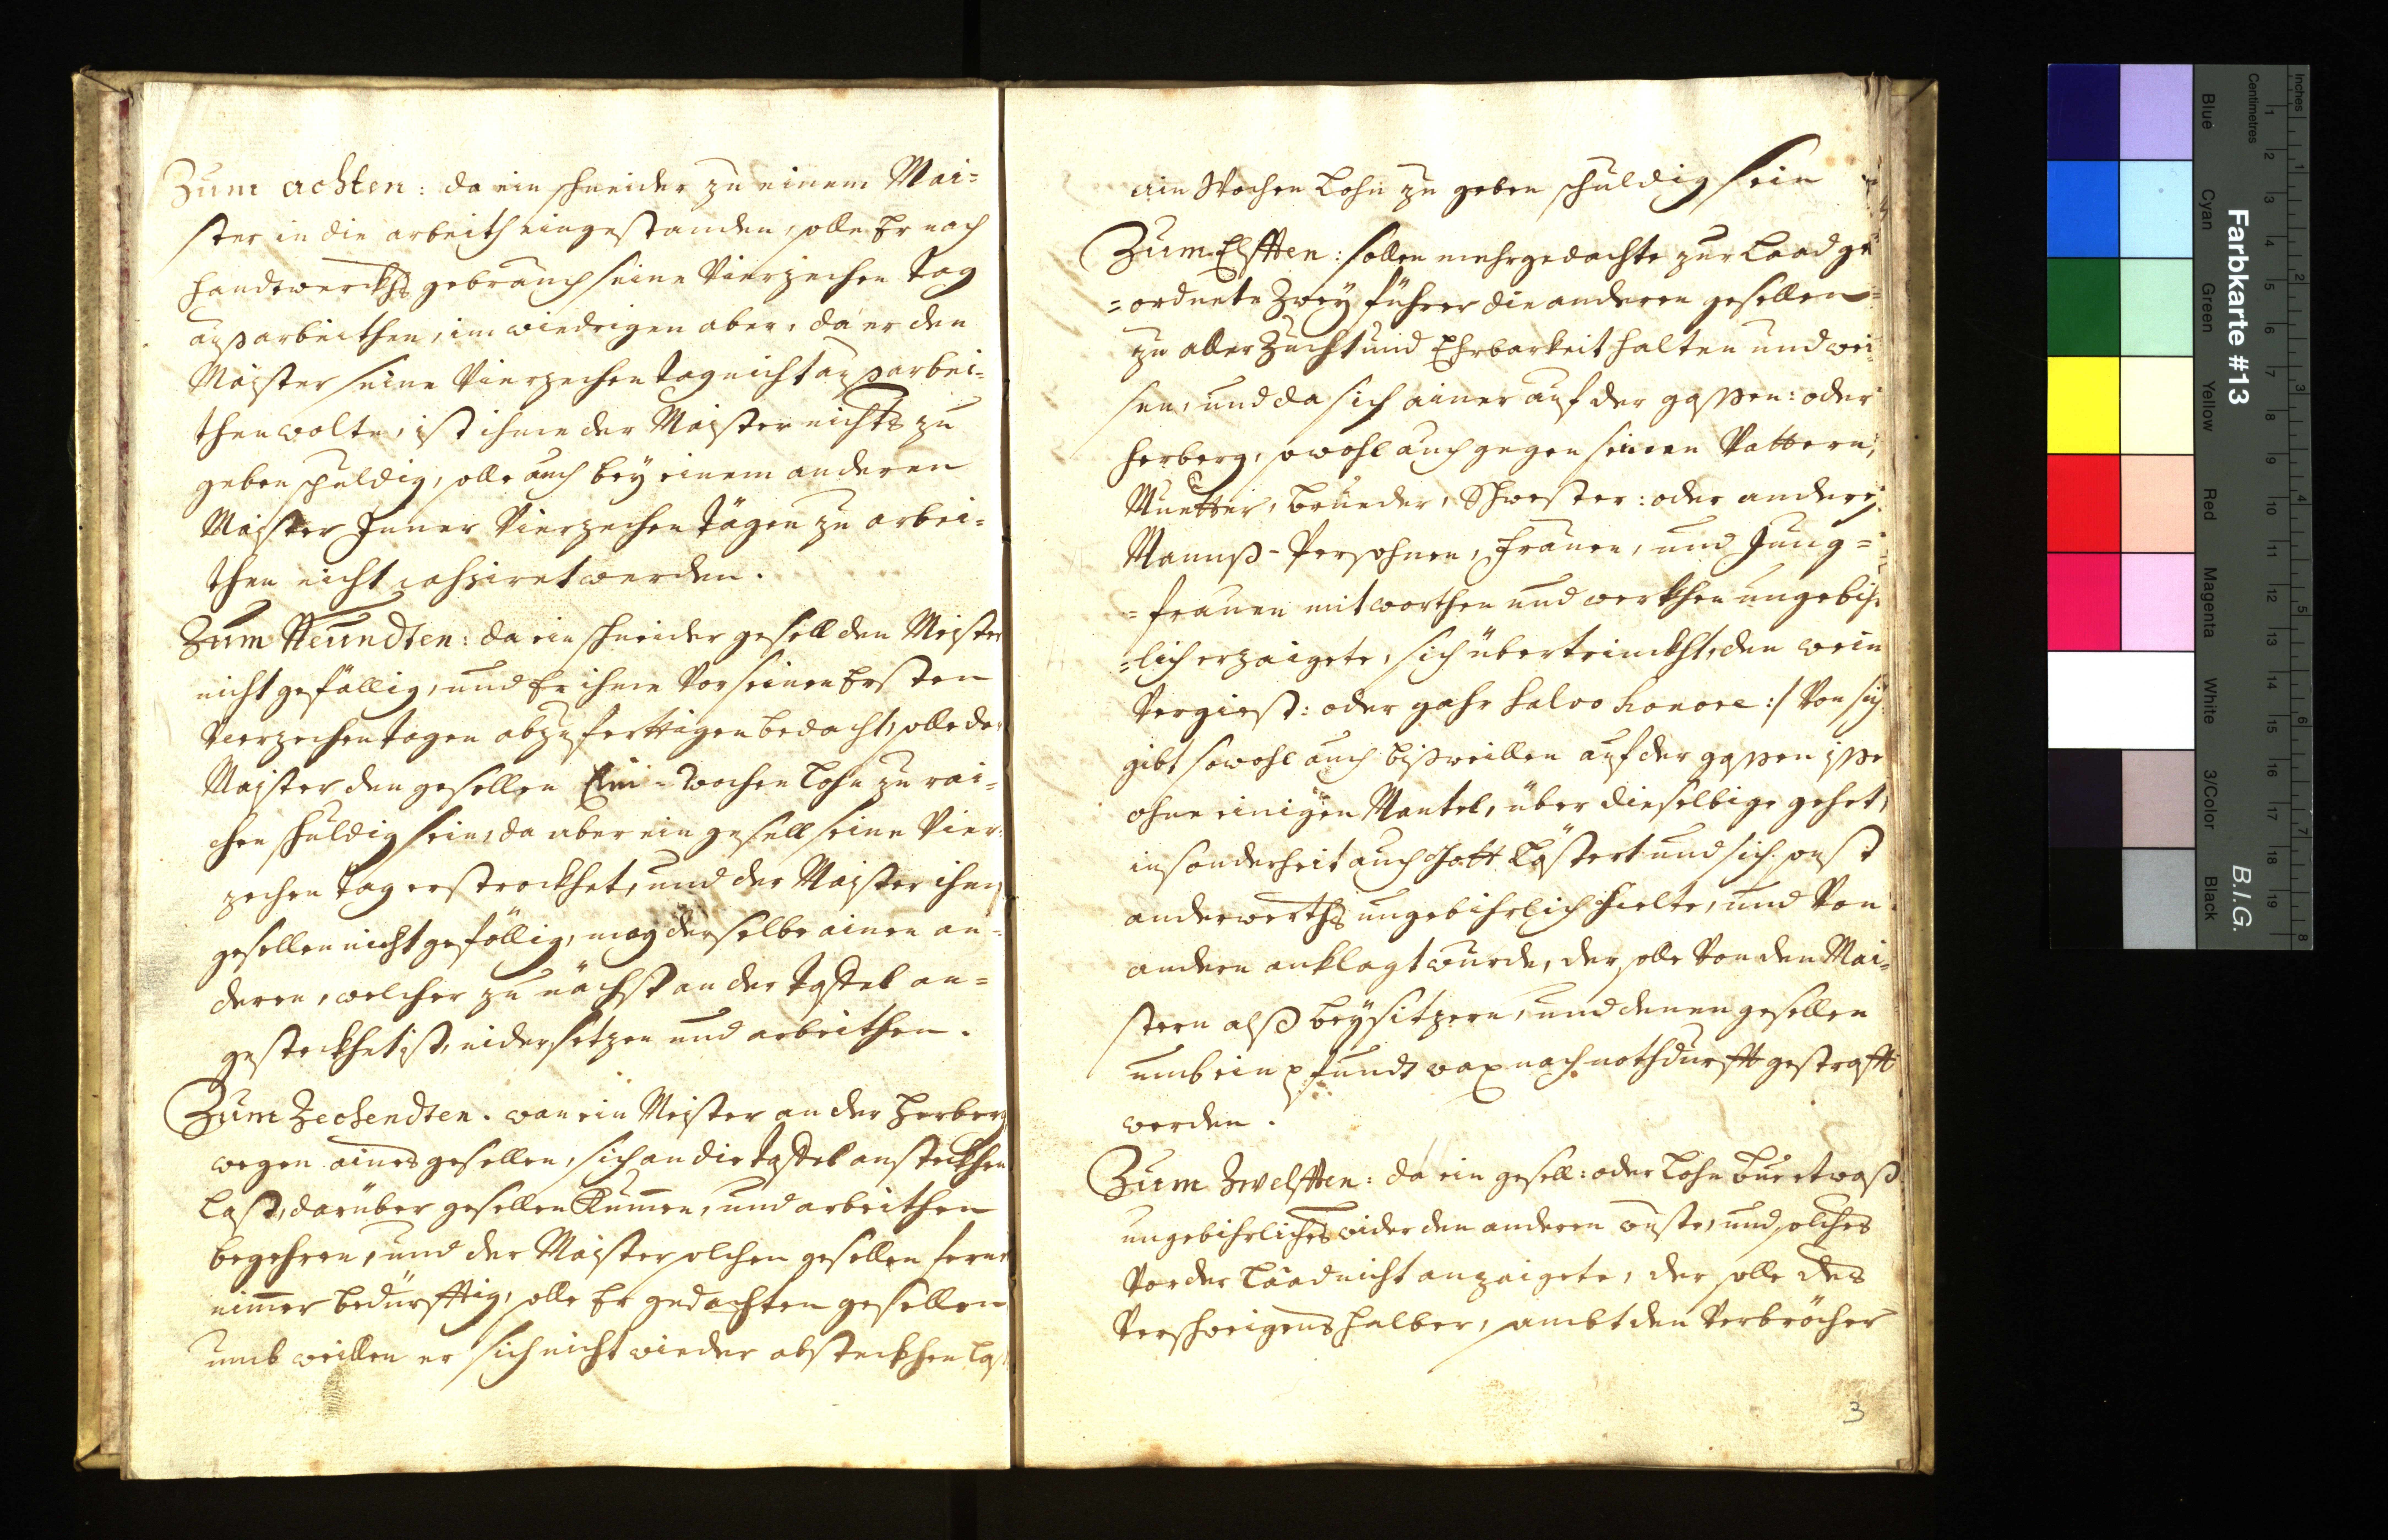 Zum achten: da ein schneider zu einem Mai=
ster in die arbeith eingestanden, solle Er nach
handtwerckhs gebrauch seine Vierzechen tag
außarbeithen, im wiedrigen aber, da er den
Maister seine Vierzechen tag nicht außarbei=
then wolte, ist ihme der Maister nichts zu
geben schuldig, solle auch bey einem anderen
Maister Inner Vierzechen tägen zu arbei=
then nicht passiret werden.
Zum Neundten: da ein schneider gesell den Meister
nicht gefällig, und Er ihme Vor seinen Ersten
Vierzechen tagen abzuferttigen bedacht, solle der
Maister den gesellen Ein=wochen lohn zu rai=
chen schuldig sein, da aber ein gesell seine Vier=
zechen tag erstreckhet, und der Maister ihme
gesellen nicht gefällig, mag derselbe ainen an=
deren, welcher zu nächst an der taffel an=
gesteckhet ist, nidersetzen und arbeithen.
Zum Zechendten. wan ein Meister an der Herberg
wegen aines gesellen, sich an die taffel ansteckhen
last, darüber gesellen kummen, und arbeithen
begehren, und der Maister solchen gesellen ferner
nimmer bedürfftig, solle Er gedachten gesellen
umb weillen er sich nicht wieder absteckhen last
ain Wochen Lohn zu geben schuldig sein
Zum Elfften: sollen mehrgedachte zur Laad ge
=ordnete Zwey führer die anderen gesellen
zu aller Zucht und Ehrbarkeit halten und wei=
sen, und da sich ainer auf der gassen: oder
herberg, sowohl auch gegen seinen Vattern,
Muetter, brueder, Schwester: oder andere
Mannß=Persohnen, frauen, und Jung=
=frauen mit worthen und werkhen ungebihr
=lich erzaigete, sich übertrinckht, den wein
Vergiest: oder gahr salvo honore :/ Von sich
gibt sowohl auch bißweillen auf der gassen isse
ohne einigen Mantel, über dieselbige gehet,
insonderheit auch Gott lästert und sich sonst
anderwerths ungebihrlich hielte, und Von
andern anklagt wurde, der solle Von den Mai=
stern alß beysitzern, und denen gesellen
umb ein pfundt wax nach nothdurfft gestrafft
werden.
Zum Zwelfften: da ein gesell: oder lohn bue etwaß
ungebihrliches wider den anderen wuste, und solches
Vor der Laad nicht anzaigete, der solle des
Verschweigens halber, sambt den Verbröcher
3
Farbkarte #13
B.I.G.
Inches
Centimetres
Blue
Cyan
Green
Yellow
Red
Magenta
White
3/Color
Black
1 2 3 4 5 6 7 8
1 2 3 4 5 6 7 8 9 10 11 12 13 14 15 16 17 18 19